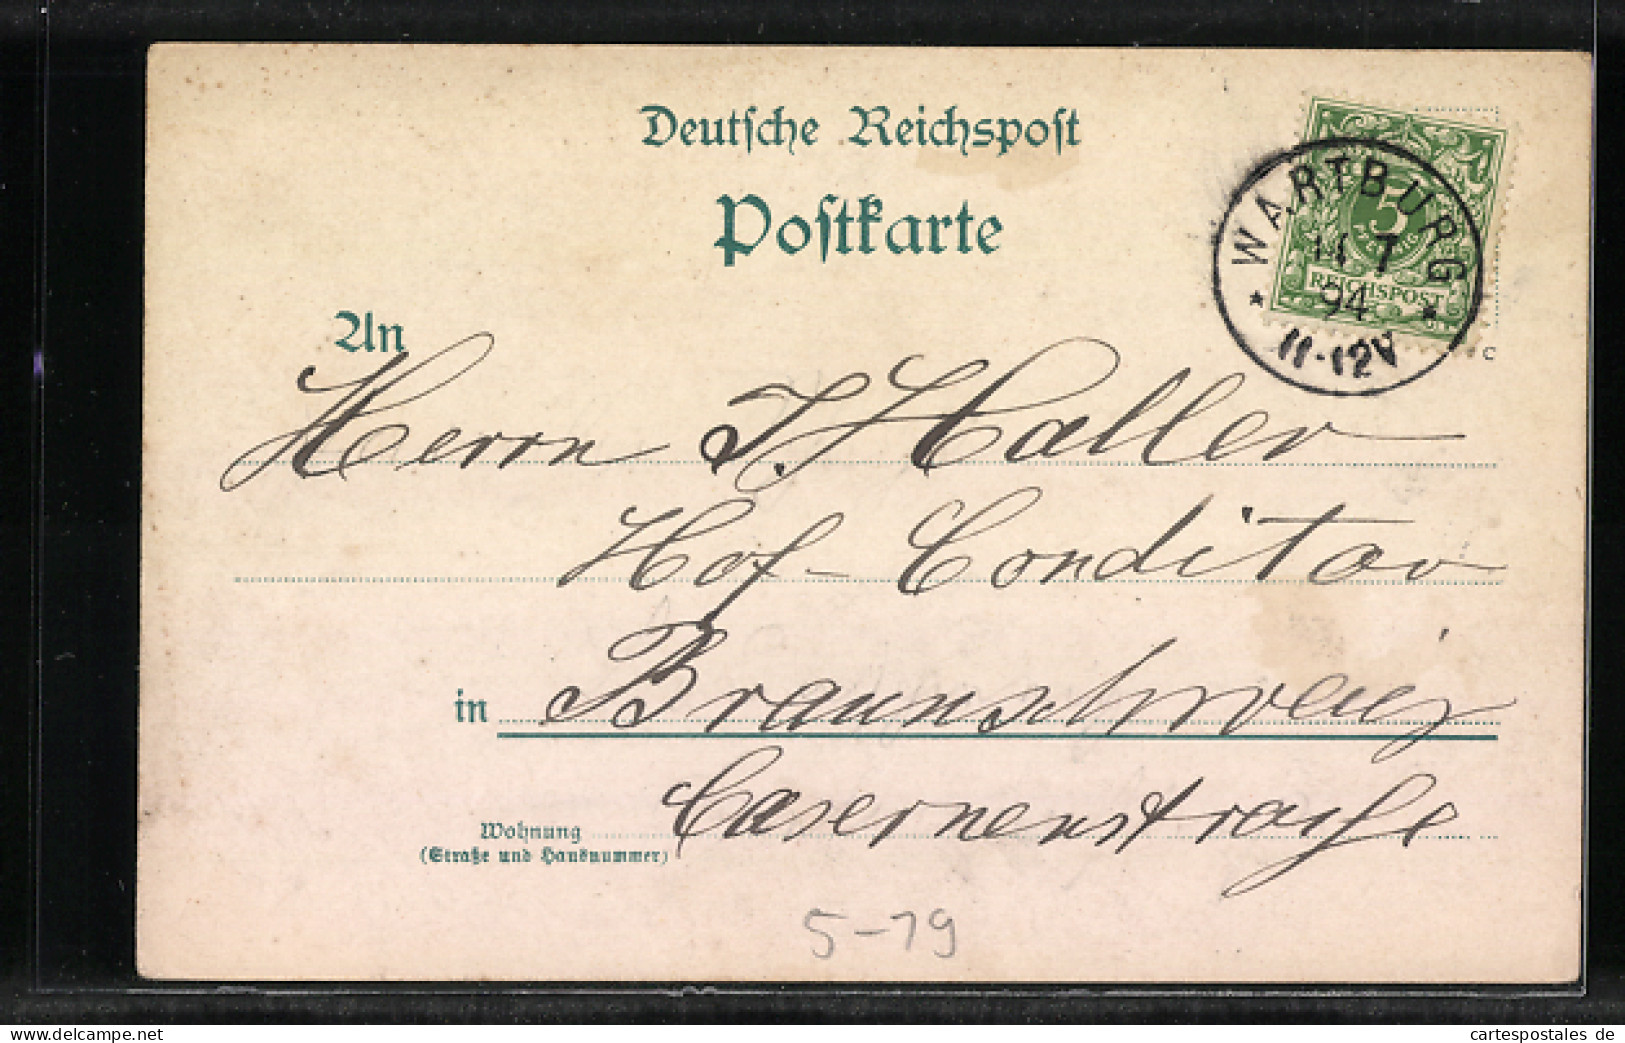 Deutsche Reichspost
Postkarte
5
PFENNIG
REICHSPOST
WARTBURG
14 7
94
* *
11-12V
C
An
Herrn J. Haller
Hof-Conditor
in Braunschweig
Casernenstraße
Wohnung
(Straße und Hausnummer)
5-19
www.delcampe.net
cartespostales de